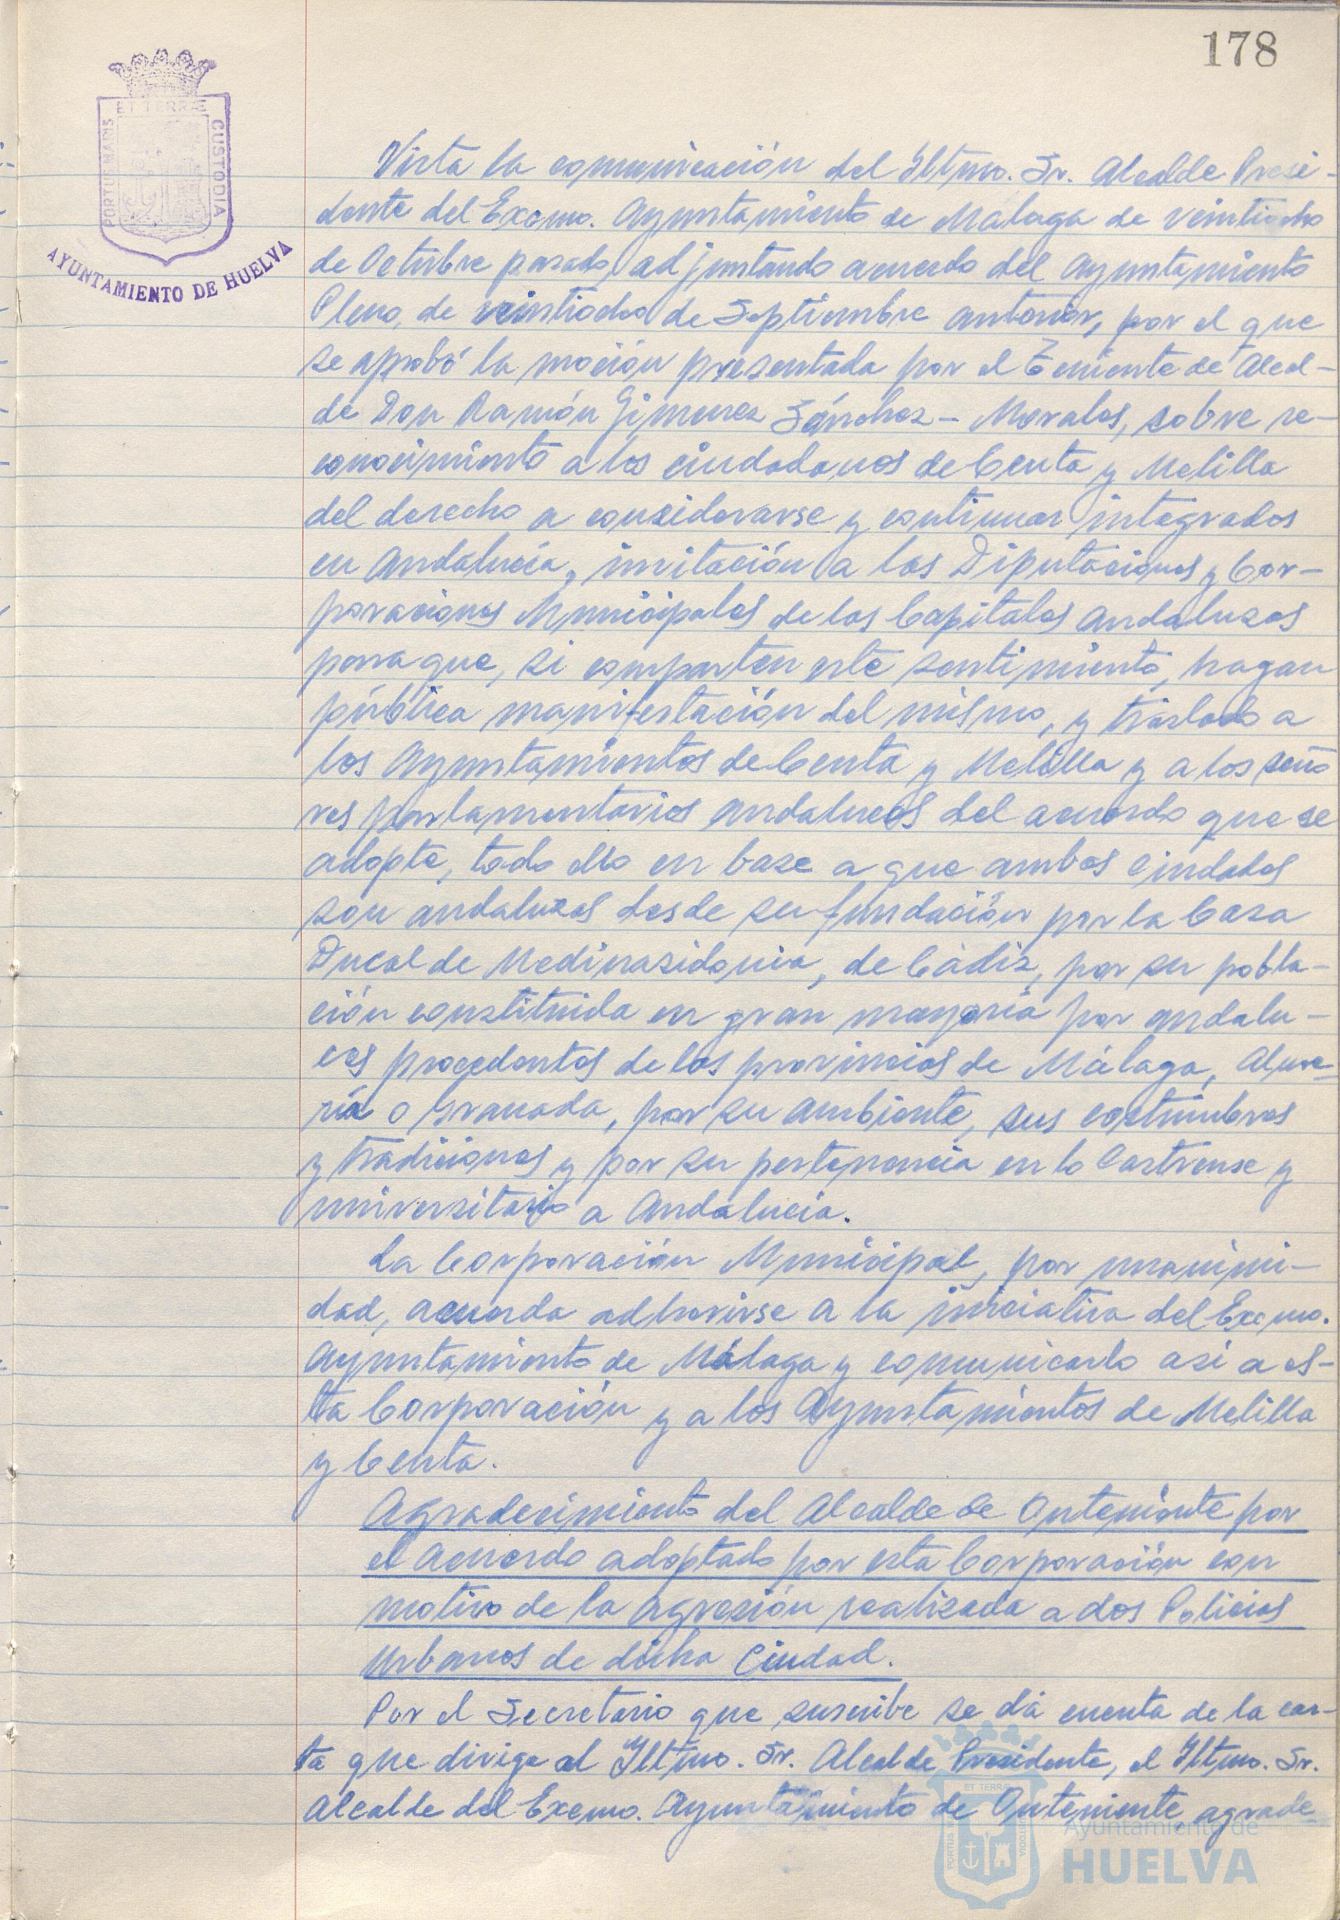 178
ET TERRÆ
PORTUS MARIS
CUSTODIA
AYUNTAMIENTO DE HUELVA
Vista la comunicación del Iltmo. Sr. Alcalde Presi-
dente del Excmo. Ayuntamiento de Málaga de veintiocho
de Octubre pasado, adjuntando acuerdo del Ayuntamiento
Pleno, de veintiocho de Septiembre anterior, por el que
se aprobó la moción presentada por el Teniente de Alcal-
de Don Ramón Gimenez Sánchez-Morales, sobre re-
conocimiento a los ciudadanos de Ceuta y Melilla
del derecho a considerarse y continuar integrados
en Andalucía, invitación a las Diputaciones y Cor-
poraciones Municipales de las Capitales andaluzas
para que, si comparten este sentimiento, hagan
pública manifestación del mismo, y traslado a
los Ayuntamientos de Ceuta y Melilla y a los seño
res parlamentarios andaluces del acuerdo que se
adopte, todo ello en base a que ambas ciudades
son andaluzas desde su fundación por la Casa
Ducal de Medinasidonia, de Cádiz, por su pobla-
ción constituida en gran mayoría por andalu-
ces procedentes de las provincias de Málaga, Alme-
ría o Granada, por su ambiente, sus costumbres
y tradiciones y por su pertenencia en lo Castrense y
universitario a Andalucía.
La Corporación Municipal, por unanimi-
dad, acuerda adherirse a la iniciativa del Excmo.
Ayuntamiento de Málaga y comunicarlo así a es-
ta Corporación y a los Ayuntamientos de Melilla
y Ceuta.
Agradecimiento del Alcalde de Onteniente por
el acuerdo adoptado por esta Corporación con
motivo de la agresión realizada a dos Policias
Urbanos de dicha Ciudad.
Por el Secretario que suscribe se dá cuenta de la car-
ta que dirige al Iltmo. Sr. Alcalde Presidente, el Iltmo. Sr.
Alcalde del Excmo. Ayuntamiento de Onteniente agrade
Ayuntamiento de
HUELVA